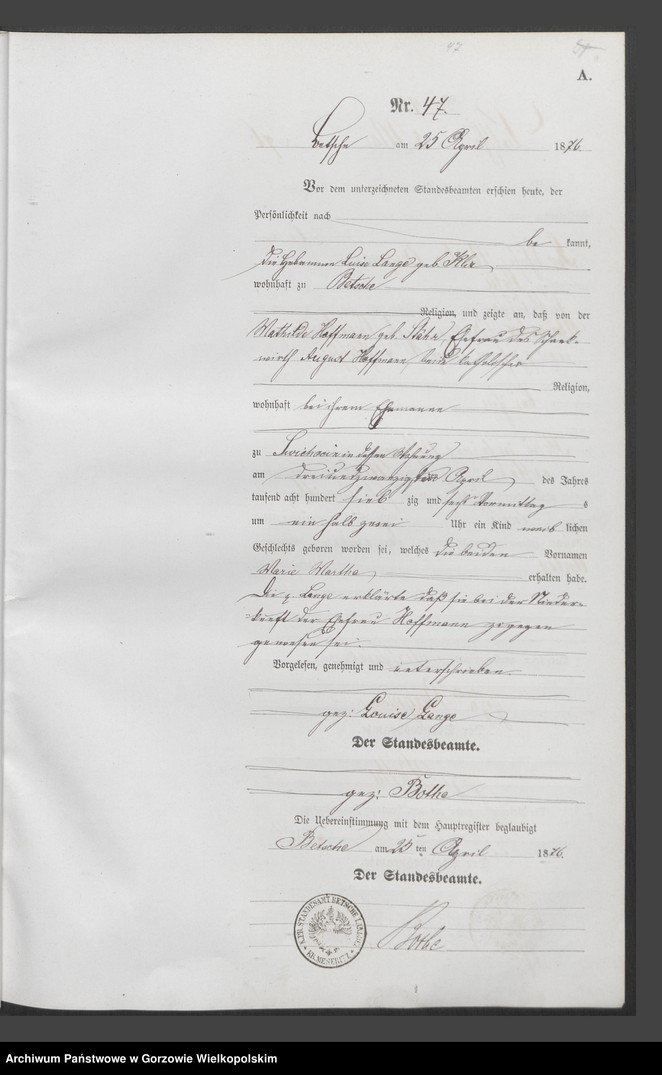 47
A.
Nr. 47.
Betsche am 25 April 1876.
Vor dem unterzeichneten Standesbeamten erschien heute, der
Persönlichkeit nach
be kannt,
die Hebamme Luise Lange geb.
wohnhaft zu Betsche
Religion, und zeigte an, daß von der
Mathilde Hoffmann geb. Stähr, Ehefrau des Schank-
wirth August Hoffmann, beide katholischer
Religion,
wohnhaft bei ihrem Ehemanne
zu in dessen Wohnung
am dreiundzwanzigsten April des Jahrs
tausend acht hundert sieb zig und sechs Vormittag s
um ein halb zwei Uhr ein Kind weib lichen
Geschlechts geboren worden sei, welches die beiden Vornamen
Marie Martha
erhalten habe.
Die p. Lange erklärte daß sie bei der Nieder-
kunft der Ehefrau Hoffmann zugegen
gewesen sei.
Vorgelesen, genehmigt und unterschrieben.
gez: Louise Lange
Der Standesbeamte.
gez: Bothe
Die Uebereinstimmung mit dem Hauptregister beglaubigt
Betsche am 25 ten April 1876.
Der Standesbeamte.
Bothe
K. PR. STANDESAMT BETSCHE
KR. MESERITZ
Archiwum Państwowe w Gorzowie Wielkopolskim